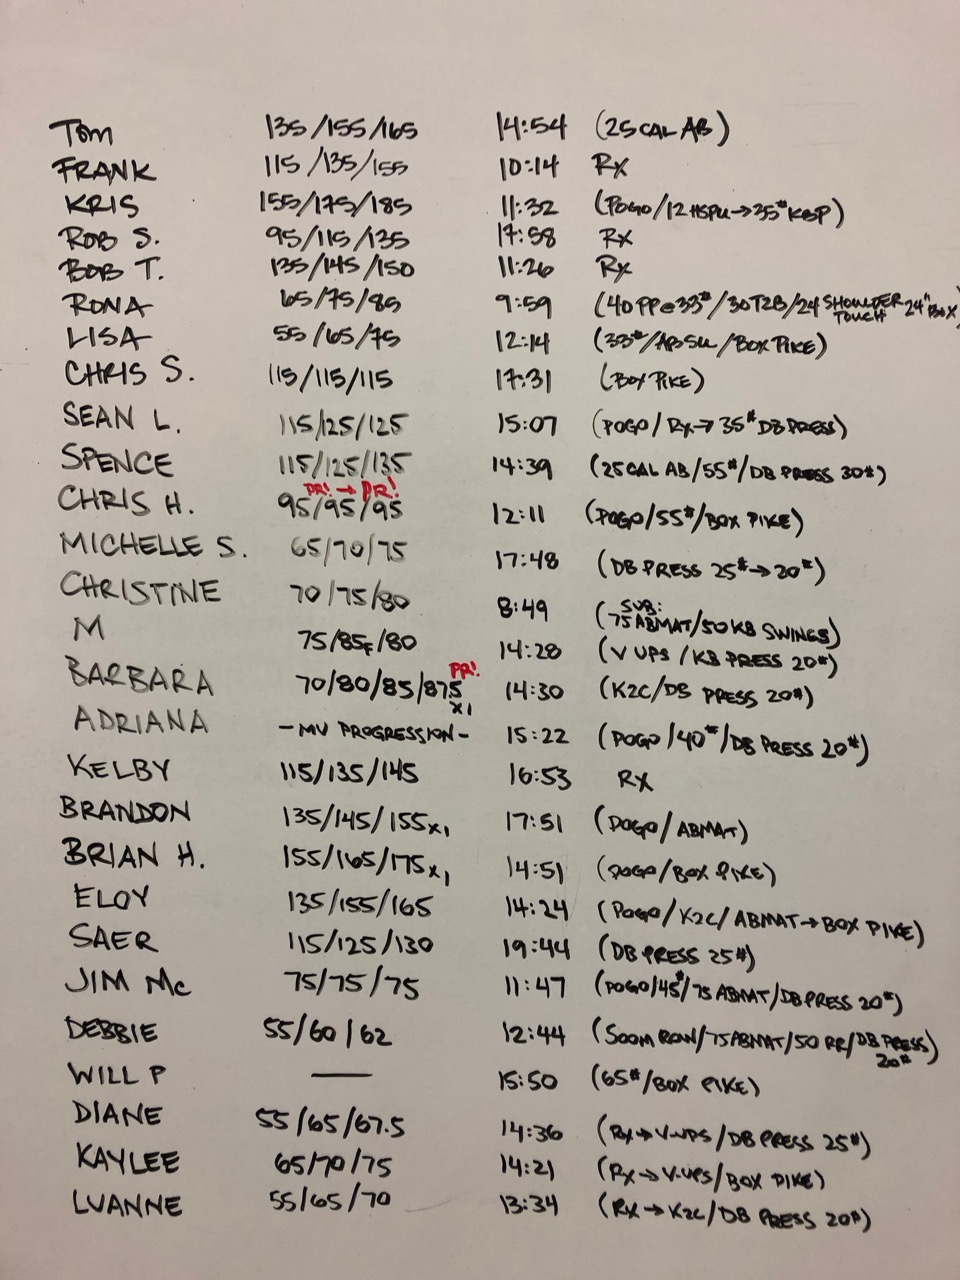 TOM 135/155/165 14:54 (25 CAL AB)
FRANK 115/135/155 10:14 RX
KRIS 155/175/185 11:32 (POGO/12 HSPU→35# KBP)
ROB S. 95/115/135 17:58 RX
BOB T. 135/145/150 11:26 RX
RONA 65/75/85 9:59 (40 PP@33#/30T2B/24 SHOULDER TOUCH 24" BOX)
LISA 55/65/75 12:14 (33#/ABSU/BOX PIKE)
CHRIS S. 115/115/115 17:31 (BOX PIKE)
SEAN L. 115/125/125 15:07 (POGO/RX→35# DB PRESS)
SPENCE 115/125/135 14:39 (25 CAL AB/55#/DB PRESS 30#)
PR! → PR!
CHRIS H. 95/95/95 12:11 (POGO/55#/BOX PIKE)
MICHELLE S. 65/70/75 17:48 (DB PRESS 25#→20#)
CHRISTINE 70/75/80 8:49 (SUB: 75 ABMAT/50 KB SWINGS)
M 75/85F/80 14:28 (V UPS/KB PRESS 20#)
BARBARA 70/80/85/87.5 x1 PR! 14:30 (K2C/DB PRESS 20#)
ADRIANA -MU PROGRESSION- 15:22 (POGO/40#/DB PRESS 20#)
KELBY 115/135/145 16:53 RX
BRANDON 135/145/155x1 17:51 (POGO/ABMAT)
BRIAN H. 155/165/175x1 14:51 (POGO/BOX PIKE)
ELOY 135/155/165 14:24 (POGO/K2C/ABMAT→BOX PIKE)
SAER 115/125/130 19:44 (DB PRESS 25#)
JIM Mc 75/75/75 11:47 (POGO/45#/75 ABMAT/DB PRESS 20#)
DEBBIE 55/60/62 12:44 (500M ROW/75 ABMAT/50 RR/DB PRESS 20#)
WILL P — 15:50 (65#/BOX PIKE)
DIANE 55/65/67.5 14:36 (RX→V-UPS/DB PRESS 25#)
KAYLEE 65/70/75 14:21 (RX→V-UPS/BOX PIKE)
LUANNE 55/65/70 13:34 (RX→K2C/DB PRESS 20#)